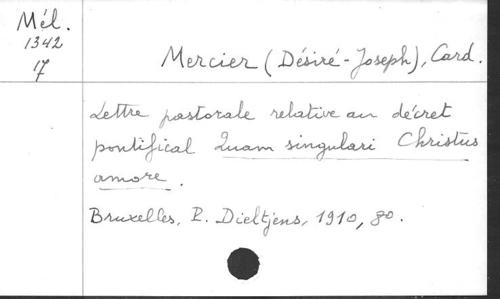 Mél.
1342
17
Mercier (Désiré-Joseph), Card.
Lettre pastorale relative au décret
pontifical Quam singulari Christus
amore.
Bruxelles, P. Dieltjens, 1910, 8º.